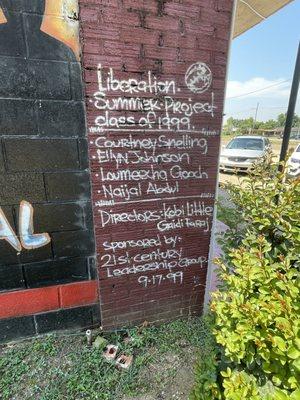 Liberation
Summer Project
class of 1999
Courtney Snelling
Ellyn Johnson
Loumeecha Gooch
Naijal Abdul
Directors: Kobi Little
Gaidi Faraj
sponsored by:
21st century
Leadership Group
9-17-99
AL